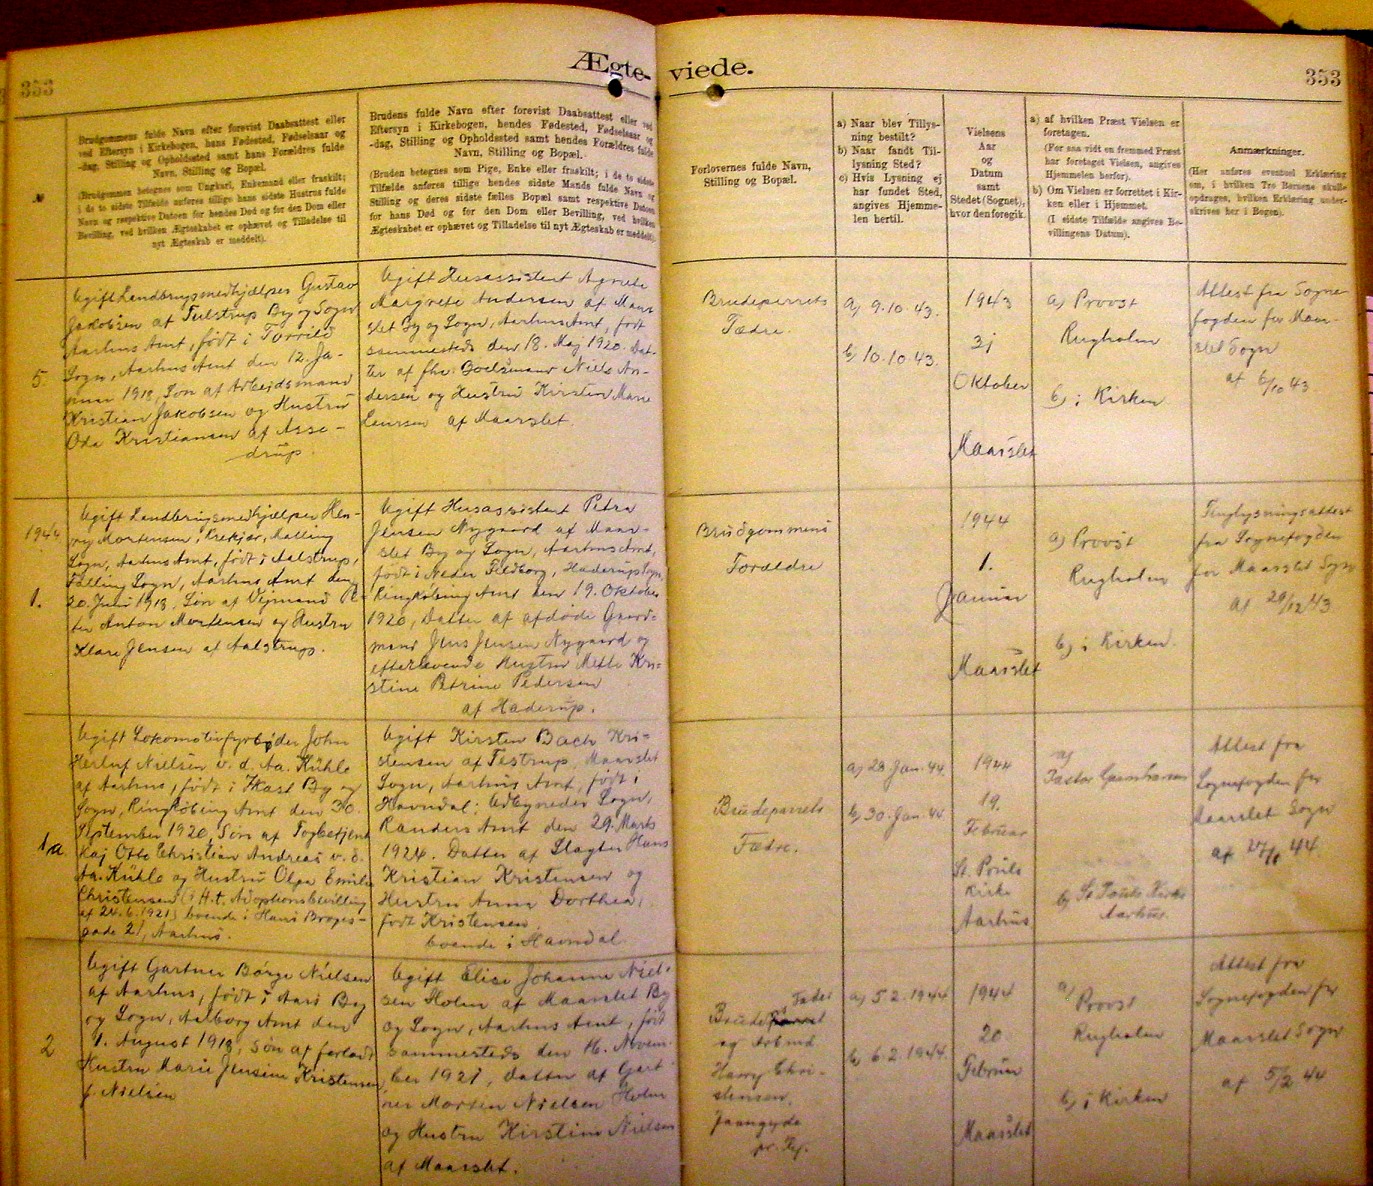 353
Ægte-
viede.
353
Brudgommens fulde Navn efter forevist Daabsattest eller
ved Eftersyn i Kirkebogen, hans Fødested, Fødselsaar og
-dag, Stilling og Opholdssted samt hans Forældres fulde
Navn, Stilling og Bopæl.
(Brudgommen betegnes som Ungkarl, Enkemand eller fraskilt;
i de to sidste Tilfælde anføres tillige hans sidste Hustrus fulde
Navn og respektive Datoen for hendes Død og for den Dom eller
Bevilling, ved hvilken Ægteskabet er ophævet og Tilladelse til
nyt Ægteskab er meddelt).
Brudens fulde Navn efter forevist Daabsattest eller ved
Eftersyn i Kirkebogen, hendes Fødested, Fødselsaar og
-dag, Stilling og Opholdssted samt hendes Forældres fulde
Navn, Stilling og Bopæl.
(Bruden betegnes som Pige, Enke eller fraskilt; i de to sidste
Tilfælde anføres tillige hendes sidste Mands fulde Navn og
Stilling og deres sidste fælles Bopæl samt respektive Datoen
for hans Død og for den Dom eller Bevilling, ved hvilken
Ægteskabet er ophævet og Tilladelse til nyt Ægteskab er meddelt).
Forlovernes fulde Navn,
Stilling og Bopæl.
a) Naar blev Tillys-
ning bestilt?
b) Naar fandt Til-
lysning Sted?
c) Hvis Lysning ej
har fundet Sted,
angives Hjemme-
len hertil.
Vielsens
Aar
og
Datum
samt
Stedet (Sognet),
hvor den foregik.
a) af hvilken Præst Vielsen er
foretagen.
(For saa vidt en fremmed Præst
har foretaget Vielsen, angives
Hjemmelen herfor).
b) Om Vielsen er forrettet i Kir-
ken eller i Hjemmet.
(I sidste Tilfælde angives Be-
villingens Datum).
Anmærkninger.
(Her anføres eventuel Erklæring
om, i hvilken Tro Børnene skulle
opdrages, hvilken Erklæring under-
skrives her i Bogen).
5.
Ugift Landbrugsmedhjælper Gustav
Jakobsen af Tulstrup By og Sogn
Aarhus Amt, født i Torrild
Sogn, Aarhus Amt den 12. Ja-
nuar 1918, Søn af Arbejdsmand
Kristian Jakobsen og Hustru
Oda Kristiansen af Asse-
drup.
Ugift Husassistent Agnete
Margrete Andersen af Maars-
let By og Sogn, Aarhus Amt, født
sammesteds den 18. Maj 1920. Dat-
ter af fhv. Boelsmand Niels An-
dersen og Hustru Kirsten Marie
Laursen af Maarslet.
Brudeparrets
Fædre.
a) 9.10.43.
b) 10.10.43.
1943
31
Oktober
Maarslet
a) Provst
Rugholm
b) i Kirken
Attest fra Sogne-
fogden for Maar-
slet Sogn
af 6/10 43
1944
1.
Ugift Landbrugsmedhjælper Hen-
ry Mortensen, Krekjær, Malling
Sogn, Aarhus Amt, født i Aalstrup,
Falling Sogn, Aarhus Amt den
20. Juni 1918, Søn af Vejmand Pe-
ter Anton Mortensen og Hustru
Klara Jensen af Aalstrup.
Ugift Husassistent Petra
Jensen Nygaard af Maar-
slet By og Sogn, Aarhus Amt,
født i Neder Feldborg, Haderup Sogn,
Ringkøbing Amt den 19. Oktober
1920, Datter af afdøde Gaard-
mand Jens Jensen Nygaard og
efterlevende Hustru Mette Kri-
stine Petrine Pedersen
af Haderup.
Brudgommens
Forældre
1944
1.
Januar
Maarslet
a) Provst
Rugholm
b) i Kirken.
Tinglysningsattest
fra Sognefogden
for Maarslet Sogn
af 29/12 43
1a
Ugift Lokomotivfyrbøder John
Herluf Nielsen v. d. Aa. Kühle
af Aarhus, født i Ikast By og
Sogn, Ringkøbing Amt den 30.
September 1920, Søn af Togbetjent
Kaj Otto Christian Andreas v. d.
Aa. Kühle og Hustru Olga Emilie
Christensen (i H.t. Adoptionsbevilling
af 24.6.1921) boende i Hans Broges-
gade 21, Aarhus.
Ugift Kirsten Bach Kri-
stensen af Testrup, Maarslet
Sogn, Aarhus Amt, født i
Havndal, Udbyneder Sogn,
Randers Amt den 29. Marts
1924. Datter af Slagter Hans
Kristian Kristensen og
Hustru Anna Dorthea,
født Kristensen
boende i Havndal.
Brudeparrets
Fædre.
a) 28 Jan. 44
b) 30. Jan. 44
1944
19.
Februar
St. Pouls
Kirke
Aarhus
a)
Pastor
b) St. Pouls Kirke
Aarhus.
Attest fra
Sognefogden for
Maarslet Sogn
af 27/1 44.
2
Ugift Gartner Børge Nielsen
af Aarhus, født i Aars By
og Sogn, Aalborg Amt den
1. August 1918, Søn af forladt
Hustru Marie Jensine Kristensen
f. Nielsen
Ugift Elise Johanne Niel-
sen Holm af Maarslet By
og Sogn, Aarhus Amt, født
sammesteds den 16. Novem-
ber 1921, datter af Gart-
ner Morten Nielsen Holm
og Hustru Kirstine Nielsen
af Maarslet.
Fader
Brudens
og Arbmd
Harry Chri-
stensen,
a) 5.2.1944
b) 6.2.1944.
1944
20.
Februar
Maarslet
a)
Provst
Rugholm
b) i Kirken
Attest fra
Sognefogden for
Maarslet Sogn
af 5/2 44